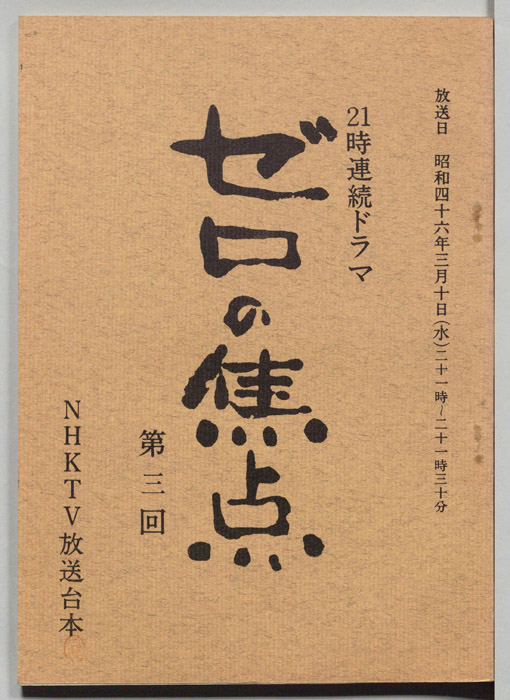 放送日 昭和四十六年三月十日(水)二十一時~二十一時三十分
21時連続ドラマ
ゼロの焦点
第三回
NHKTV放送台本